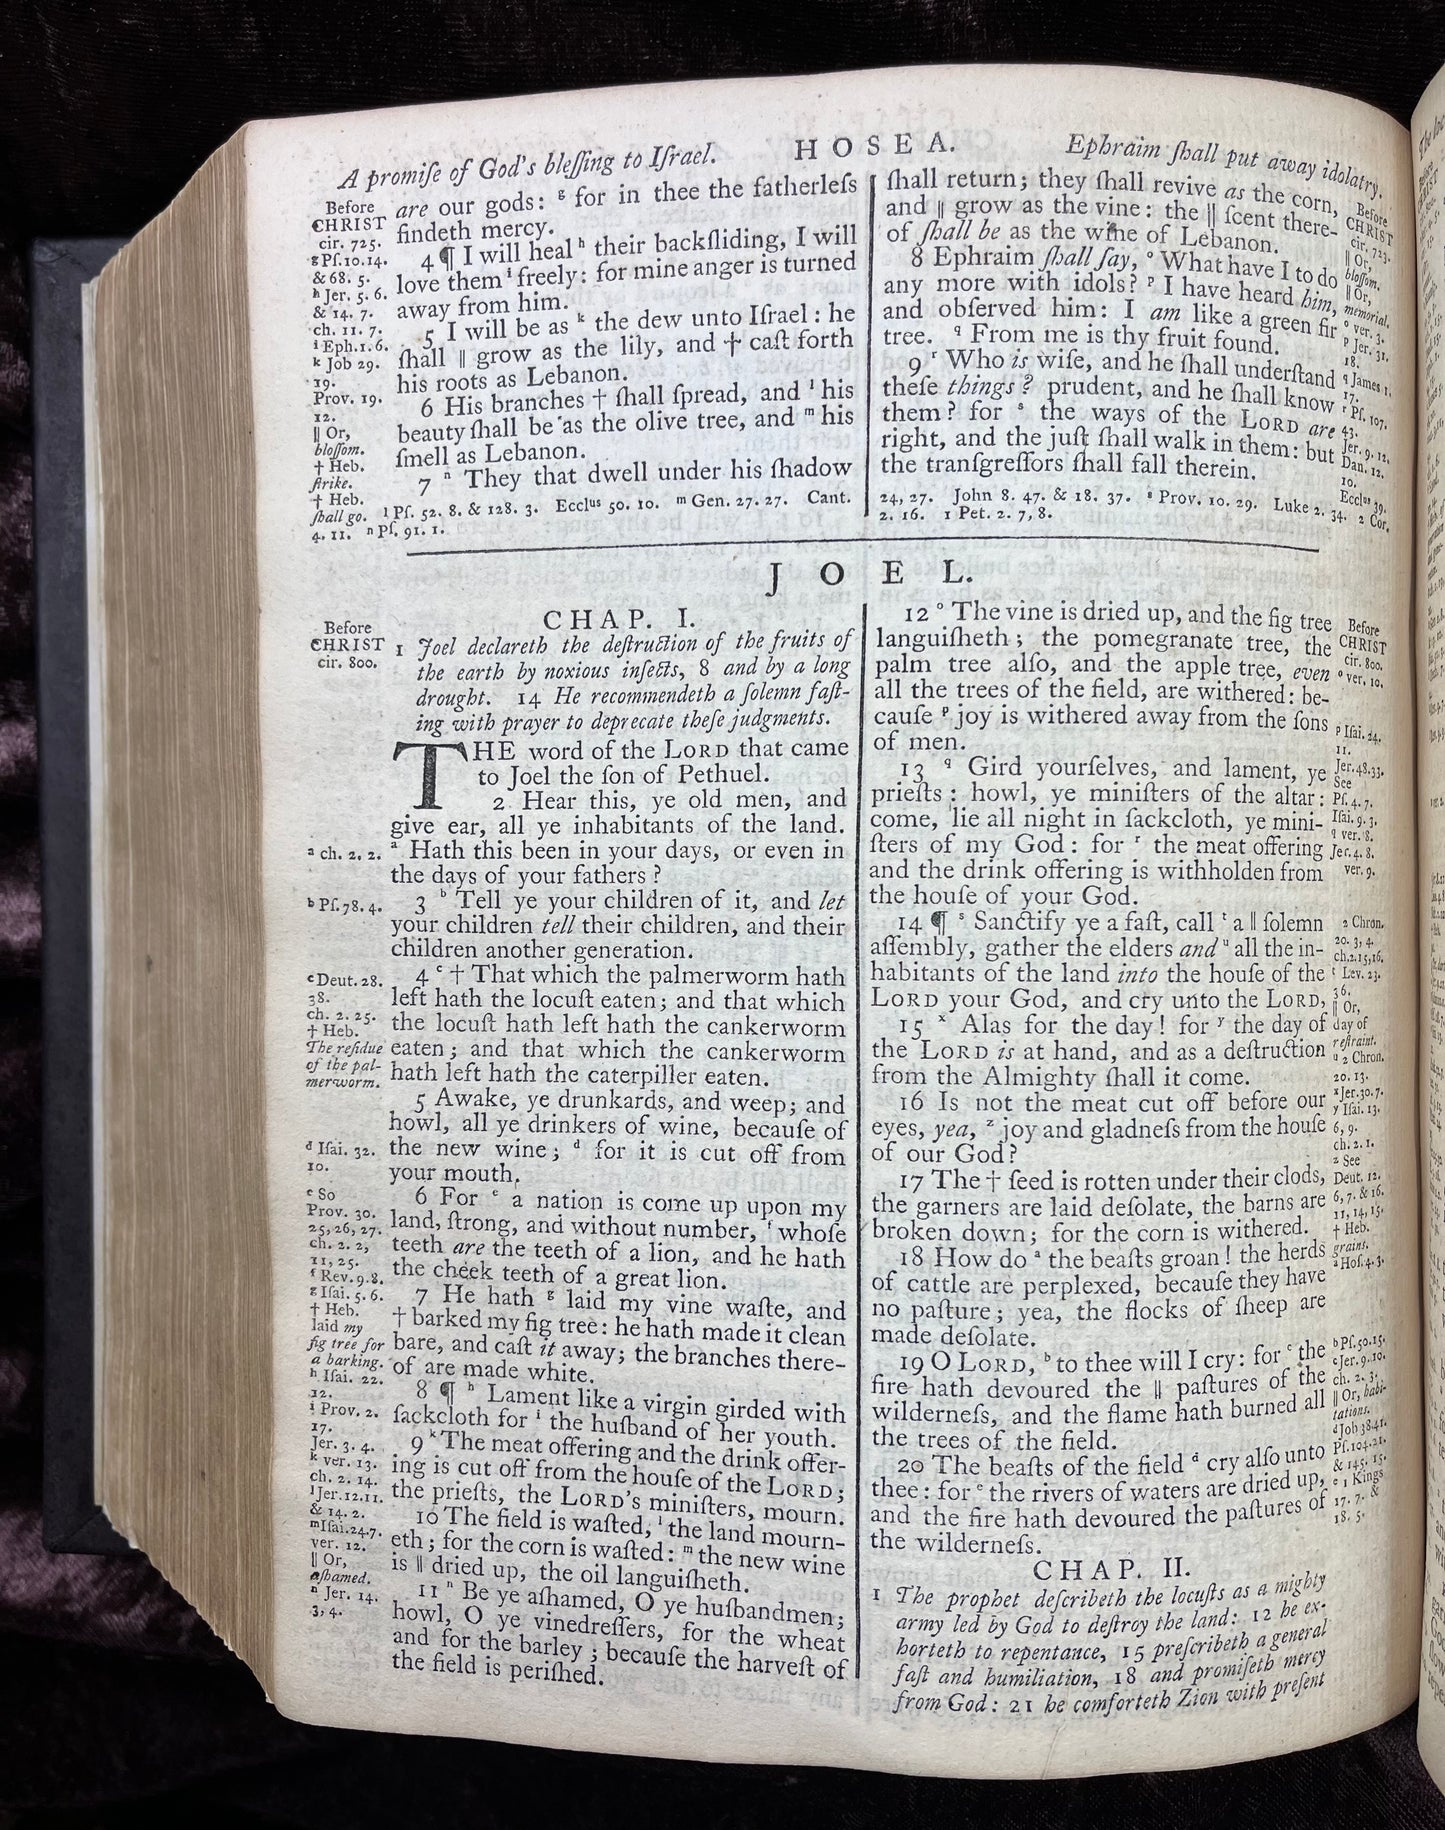 A promiſe of God's bleſſing to Iſrael.
HOSEA.
Ephraim ſhall put away idolatry.
Before
CHRIST
cir. 725.
g Pſ. 10. 14.
& 68. 5.
h Jer. 5. 6.
& 14. 7.
ch. 11. 7.
i Eph. 1. 6.
k Job 29.
19.
Prov. 19.
12.
|| Or,
bloſſom.
† Heb.
ſtrike.
† Heb.
ſhall go.
are our gods: g for in thee the fatherleſs
findeth mercy.
4 ¶ I will heal h their backſliding, I will
love them i freely: for mine anger is turned
away from him.
5 I will be as k the dew unto Iſrael: he
ſhall || grow as the lily, and † caſt forth
his roots as Lebanon.
6 His branches † ſhall ſpread, and l his
beauty ſhall be as the olive tree, and m his
ſmell as Lebanon.
7 n They that dwell under his ſhadow
l Pſ. 52. 8. & 128. 3. Ecclus 50. 10. m Gen. 27. 27. Cant.
4. 11. n Pſ. 91. 1.
ſhall return; they ſhall revive as the corn,
and || grow as the vine: the || ſcent there-
of ſhall be as the wine of Lebanon.
8 Ephraim ſhall ſay, o What have I to do
any more with idols? p I have heard him,
and obſerved him: I am like a green fir
tree. q From me is thy fruit found.
9 r Who is wiſe, and he ſhall underſtand
theſe things? prudent, and he ſhall know
them? for s the ways of the LORD are
right, and the juſt ſhall walk in them: but
the tranſgreſſors ſhall fall therein.
24, 27. John 8. 47. & 18. 37. s Prov. 10. 29. Luke 2. 34. 2 Cor.
2. 16. 1 Pet. 2. 7, 8.
Before
CHRIST
cir. 723.
|| Or,
bloſſom.
|| Or,
memorial.
o ver. 3.
p Jer. 31.
18.
q James 1.
17.
r Pſ. 107.
43.
Jer. 9. 12.
Dan. 12.
10.
Ecclus 39.
JOEL.
Before
CHRIST
cir. 800.
a ch. 2. 2.
b Pſ. 78. 4.
c Deut. 28.
38.
ch. 2. 25.
† Heb.
The reſidue
of the pal-
merworm.
d Iſai. 32.
10.
e So
Prov. 30.
25, 26, 27.
ch. 2. 2,
11, 25.
f Rev. 9. 8.
g Iſai. 5. 6.
† Heb.
laid my
fig tree for
a barking.
h Iſai. 22.
12.
i Prov. 2.
17.
Jer. 3. 4.
k ver. 13.
ch. 2. 14.
l Jer. 12. 11.
& 14. 2.
m Iſai. 24. 7.
ver. 12.
|| Or,
aſhamed.
n Jer. 14.
3, 4.
CHAP. I.
1 Joel declareth the deſtruction of the fruits of
the earth by noxious inſects, 8 and by a long
drought. 14 He recommendeth a ſolemn faſt-
ing with prayer to deprecate theſe judgments.
THE word of the LORD that came
to Joel the ſon of Pethuel.
2 Hear this, ye old men, and
give ear, all ye inhabitants of the land.
a Hath this been in your days, or even in
the days of your fathers?
3 b Tell ye your children of it, and let
your children tell their children, and their
children another generation.
4 c † That which the palmerworm hath
left hath the locuſt eaten; and that which
the locuſt hath left hath the cankerworm
eaten; and that which the cankerworm
hath left hath the caterpiller eaten.
5 Awake, ye drunkards, and weep; and
howl, all ye drinkers of wine, becauſe of
the new wine; d for it is cut off from
your mouth.
6 For e a nation is come up upon my
land, ſtrong, and without number, f whoſe
teeth are the teeth of a lion, and he hath
the cheek teeth of a great lion.
7 He hath g laid my vine waſte, and
† barked my fig tree: he hath made it clean
bare, and caſt it away; the branches there-
of are made white.
8 ¶ h Lament like a virgin girded with
ſackcloth for i the huſband of her youth.
9 k The meat offering and the drink offer-
ing is cut off from the houſe of the LORD;
the prieſts, the LORD's miniſters, mourn.
10 The field is waſted, l the land mourn-
eth; for the corn is waſted: m the new wine
is || dried up, the oil languiſheth.
11 n Be ye aſhamed, O ye huſbandmen;
howl, O ye vinedreſſers, for the wheat
and for the barley; becauſe the harveſt of
the field is periſhed.
12 o The vine is dried up, and the fig tree
languiſheth; the pomegranate tree, the
palm tree alſo, and the apple tree, even
all the trees of the field, are withered: be-
cauſe p joy is withered away from the ſons
of men.
13 q Gird yourſelves, and lament, ye
prieſts: howl, ye miniſters of the altar:
come, lie all night in ſackcloth, ye mini-
ſters of my God: for r the meat offering
and the drink offering is withholden from
the houſe of your God.
14 ¶ s Sanctify ye a faſt, call t a || ſolemn
aſſembly, gather the elders and u all the in-
habitants of the land into the houſe of the
LORD your God, and cry unto the LORD,
15 x Alas for the day! for y the day of
the LORD is at hand, and as a deſtruction
from the Almighty ſhall it come.
16 Is not the meat cut off before our
eyes, yea, z joy and gladneſs from the houſe
of our God?
17 The † ſeed is rotten under their clods,
the garners are laid deſolate, the barns are
broken down; for the corn is withered.
18 How do a the beaſts groan! the herds
of cattle are perplexed, becauſe they have
no paſture; yea, the flocks of ſheep are
made deſolate.
19 O LORD, b to thee will I cry: for c the
fire hath devoured the || paſtures of the
wilderneſs, and the flame hath burned all
the trees of the field.
20 The beaſts of the field d cry alſo unto
thee: for e the rivers of waters are dried up,
and the fire hath devoured the paſtures of
the wilderneſs.
CHAP. II.
1 The prophet deſcribeth the locuſts as a mighty
army led by God to deſtroy the land: 12 he ex-
horteth to repentance, 15 preſcribeth a general
faſt and humiliation, 18 and promiſeth mercy
from God: 21 he comforteth Zion with preſent
Before
CHRIST
cir. 800.
o ver. 10.
p Iſai. 24.
11.
Jer. 48. 33.
See
Pſ. 4. 7.
Iſai. 9. 3.
q ver. 8.
Jer. 4. 8.
ver. 9.
2 Chron.
20. 3, 4.
ch. 2. 15, 16.
t Lev. 23.
36.
|| Or,
day of
reſtraint.
u 2 Chron.
20. 13.
x Jer. 30. 7.
y Iſai. 13.
6, 9.
ch. 2. 1.
z See
Deut. 12.
6, 7. & 16.
11, 14, 15.
† Heb.
grains.
a Hoſ. 4. 3.
b Pſ. 50. 15.
c Jer. 9. 10.
ch. 2. 3.
|| Or, habi-
tations.
d Job 38. 41.
Pſ. 104. 21.
& 145. 15.
e 1 Kings
17. 7. &
18. 5.